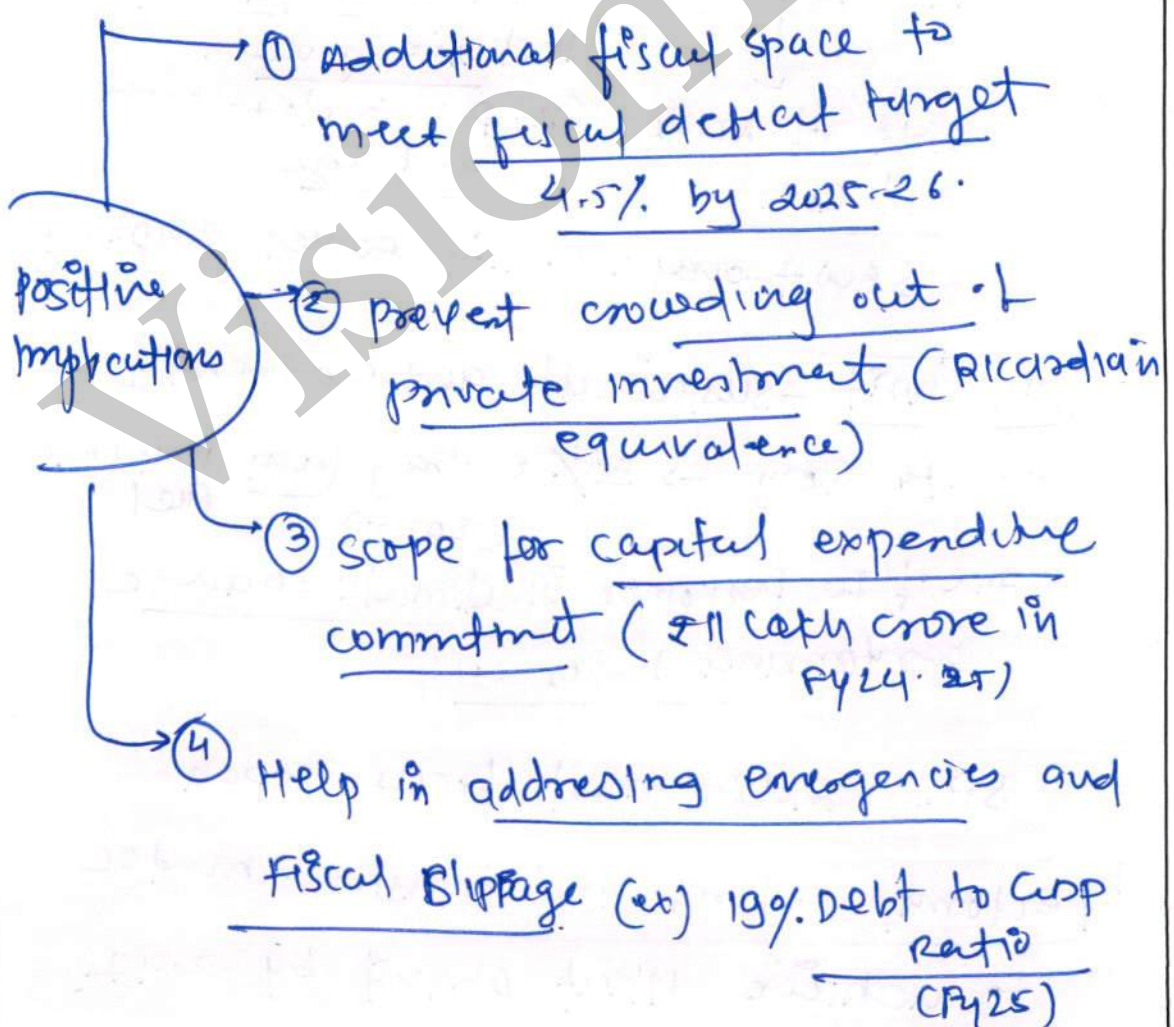 → ① Additional fiscal space to
meet fiscal deficit target
4.5% by 2025-26.
Positive
Implications
→ ② prevent crowding out of
private investment (Ricardian
equivalence)
→ ③ scope for capital expenditure
commitment (₹11 lakh crore in
FY24-25)
→ ④
Help in addressing emergencies and
Fiscal Slippage (ex) 19% Debt to GDP
Ratio
(FY25)
Vision